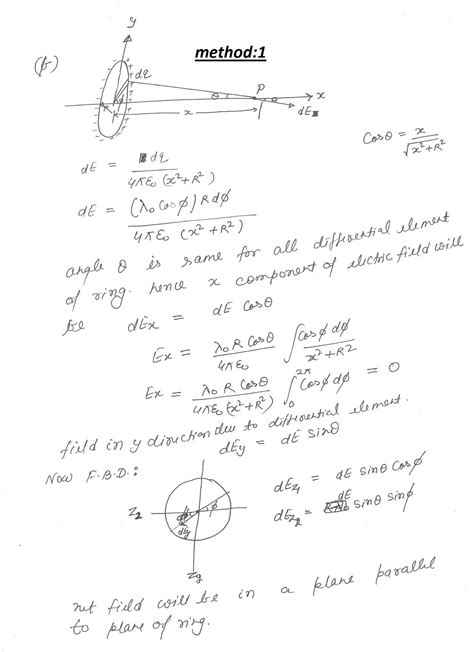 y
method:1
(b)
dq
P
θ
θ
x
R
x
dE
Cosθ = x / √(x²+R²)
dE = dq / 4πε₀ (x²+R²)
dE = (λ₀ Cos φ) R dφ / 4πε₀ (x²+R²)
angle θ is same for all differential element
of ring. hence x component of electric field will
be dEx = dE Cosθ
Ex = λ₀ R Cosθ / 4πε₀ ∫ Cosφ dφ / x²+R²
Ex = λ₀ R Cosθ / 4πε₀ (x²+R²) ∫₀^2π Cosφ dφ = 0
field in y direction due to differential element.
dEy = dE Sinθ
Now F.B.D.:
φ
dEy
Z₂
Zy
dEz₁ = dE Sinθ Cosφ
dEz₂ = dE Sinθ Sinφ
net field will be in a plane parallel
to plane of ring.